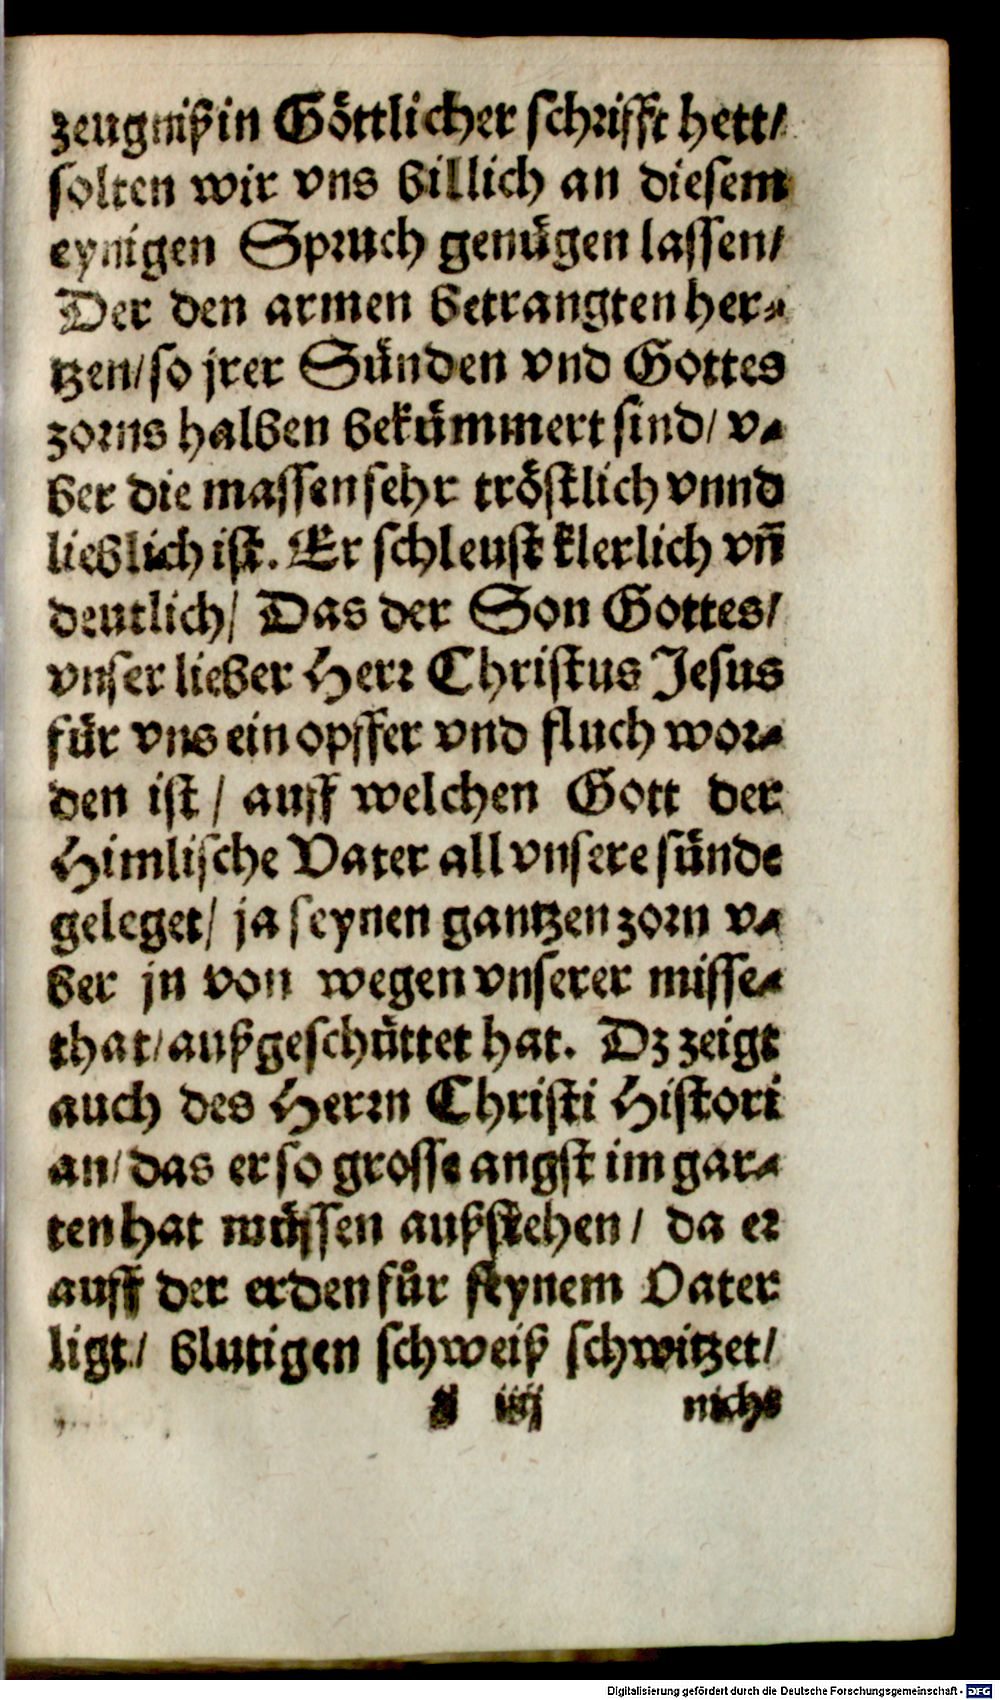 zeugniß in Göttlicher schrifft hett/
solten wir vns billich an diesem
eynigen Spruch genügen lassen/
Der den armen betrangten her-
tzen/ so jrer Sünden vnd Gottes
zorns halben bekümmert sind/ v-
ber die massen sehr tröstlich vnnd
lieblich ist. Er schleust klerlich vñ
deutlich/ Das der Son Gottes/
vnser lieber Herr Christus Jesus
für vns ein opffer vnd fluch wor-
den ist / auff welchen Gott der
Himlische Vater all vnsere sünde
geleget/ ja seynen gantzen zorn v-
ber jn von wegen vnserer misse-
that/ außgeschüttet hat. Dz zeigt
auch des Herrn Christi Histori
an/ das er so grosse angst im gar-
ten hat müssen außstehen/ da er
auff der erden für seynem Vater
ligt/ blutigen schweiß schwitzet/
iiij nichs
Digitalisierung gefördert durch die Deutsche Forschungsgemeinschaft - DFG